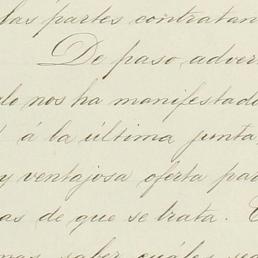 las partes contratan
De paso adver
lo nos ha manifestado
á la última junta,
y ventajosa oferta pa
as de que se trata.
mas saber cuáles se